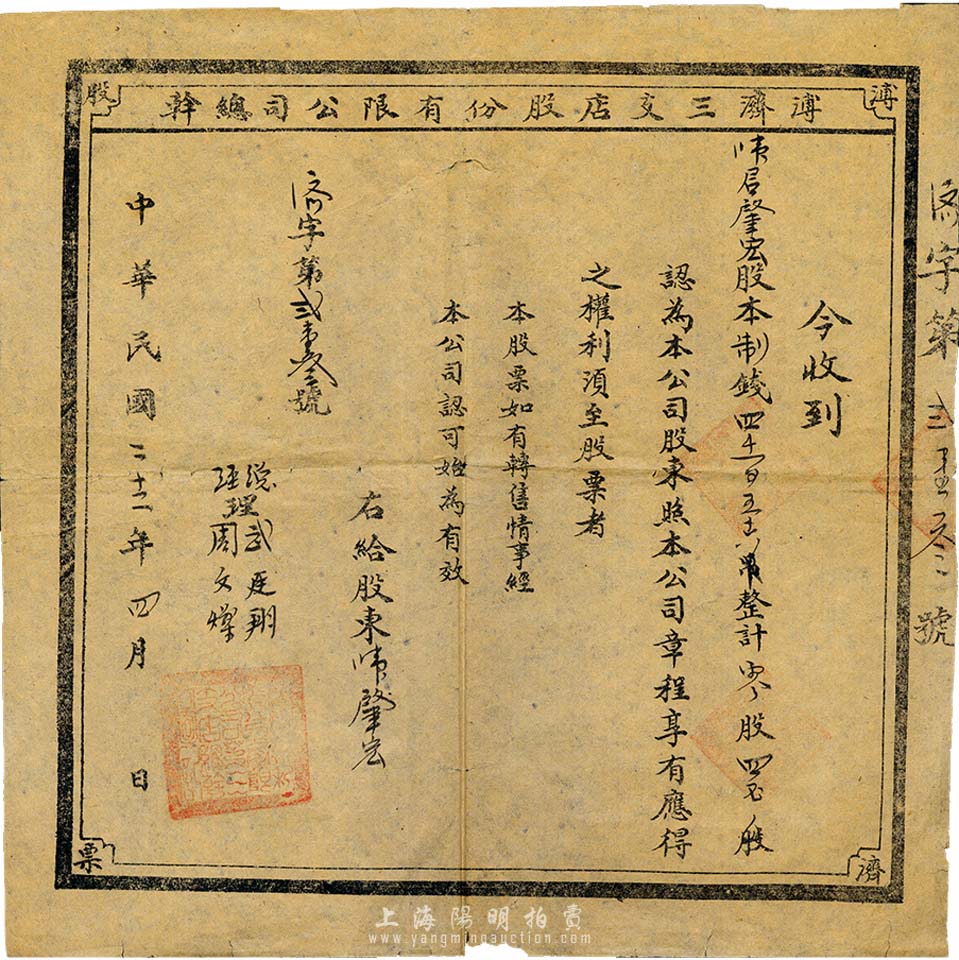 溥濟三支店股份有限公司總幹
溥
濟
股
票
今收到
君肇宏股本制錢四十百五十吊整計零股四
股
認為本公司股東照本公司章程享有應得
之權利須至股票者
本股票如有轉售情事經
本公司認可始為有效
右給股東
肇宏
濟字第貳壹叁號
總
經理
武廷翔
周文燦
中華民國二十二年四月 日
濟字第
號
上海陽明拍賣
www.yangmingauction.com